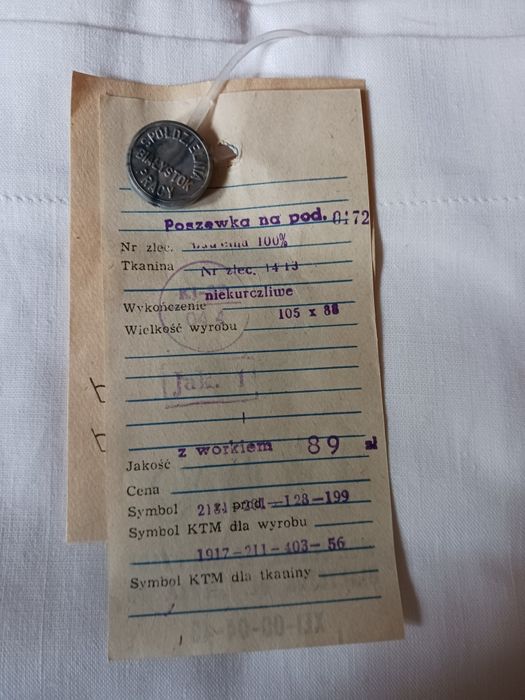 SPÓŁDZIELNIA
PRACY
BIAŁYSTOK
Poszewka na pod. 0472
Nr zlec. 100%
Tkanina Nr zlec. 1413
Wykończenie niekurczliwe
Wielkość wyrobu 105 x 88
Jak. I
z workiem 89 zł
Jakość
Cena
Symbol prod.
Symbol KTM dla wyrobu
1917-211-403-56
Symbol KTM dla tkaniny